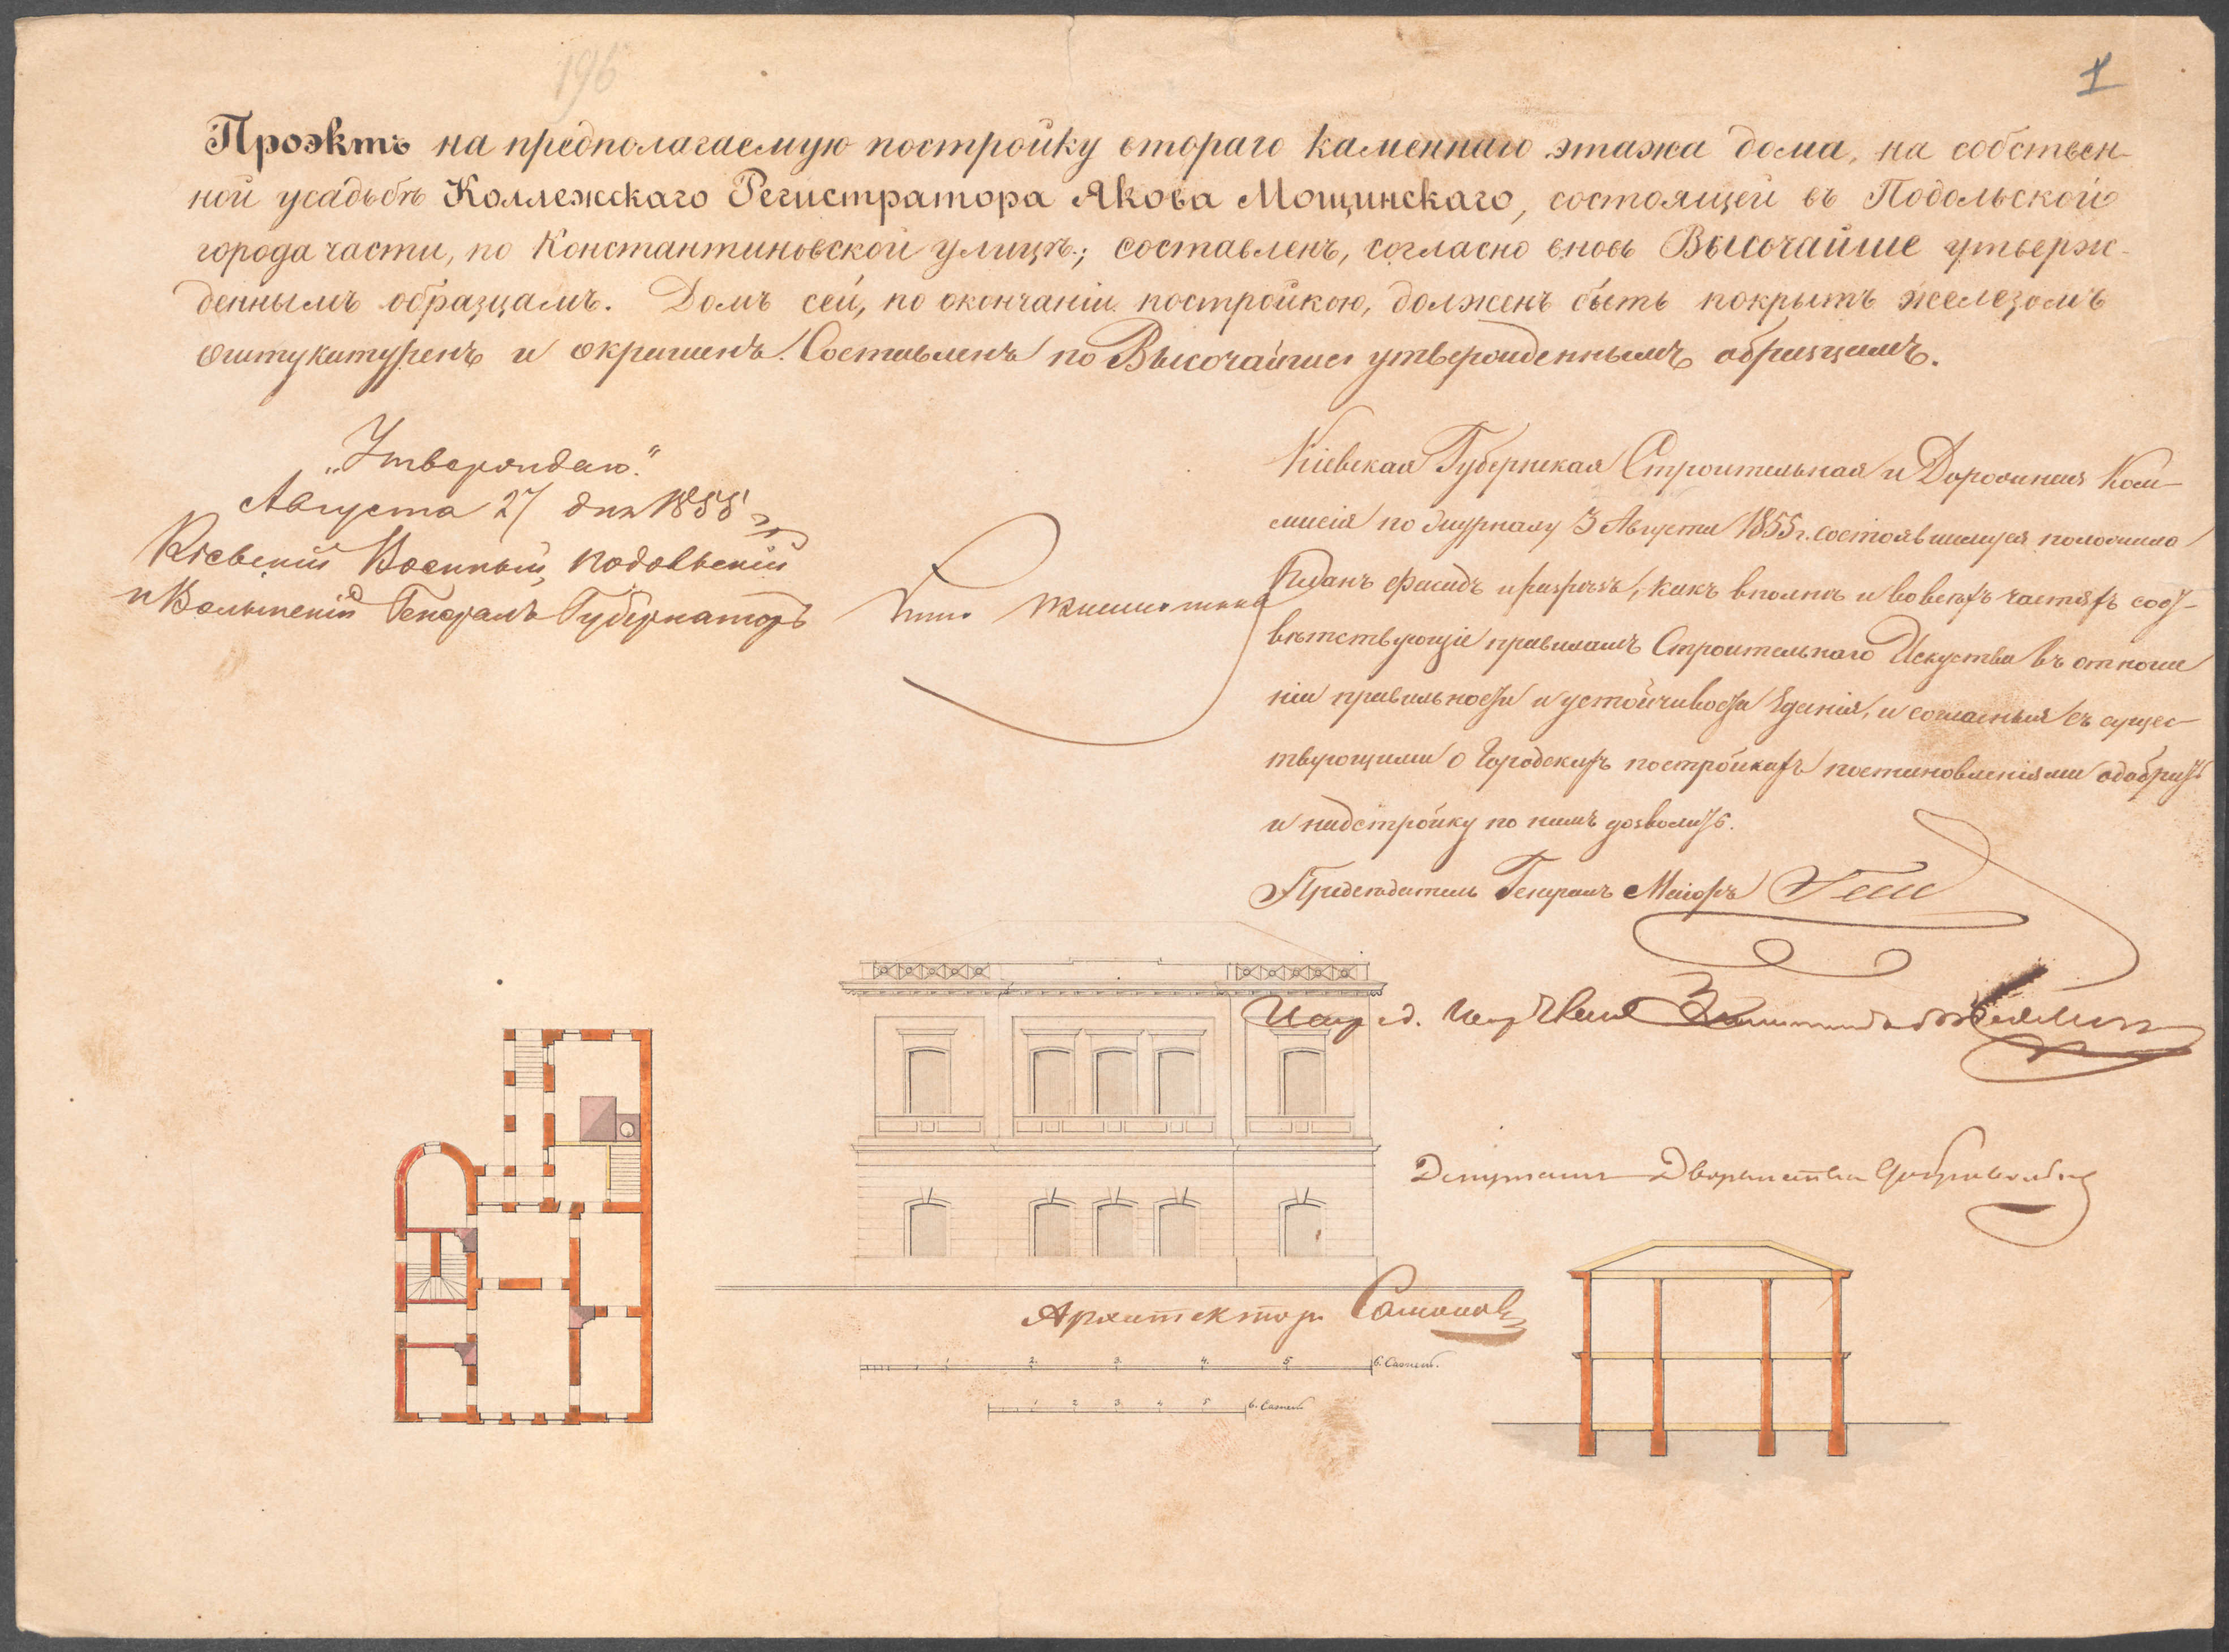 196
1
Проэктъ на предполагаемую постройку втораго каменнаго этажа дома, на собствен-
ной усадьбѣ Коллежскаго Регистратора Якова Мощинскаго, состоящей въ Подольской
города части, по Константиновской улицѣ; составленъ, согласно вновь Высочайше утверж-
деннымъ образцамъ. Домъ сей, по окончаніи постройкою, долженъ быть покрытъ железомъ
оштукатуренъ и окрашенъ. Составленъ по Высочайше утвержденнымъ образцамъ.
„Утверждаю."
Августа 27 дня 1855
Кіевскій Военный, Подольскій
и Волынскій Генералъ Губернаторъ
Кіевская Губернская Строительная и Дорожная Ком-
мисія по журналу 3 Августа 1855 г. состоявшемуся положила
Планъ фасадъ и разрѣзъ, какъ вполнѣ и во всѣхъ частяхъ соот-
вѣтствующіе правиламъ Строительнаго Искуства въ отноше
ніи правильности и устойчивости зданія, и согласныя съ сущес-
твующими о Городскихъ постройкахъ постановленіями одобрить
и надстройку по нимъ дозволить.
Председатель Генералъ Маіоръ
Депутатъ Дворянства
Архитекторъ
1 2. 3. 4. 5 6. Сажень.
1 2 3 4 5 6. Сажень